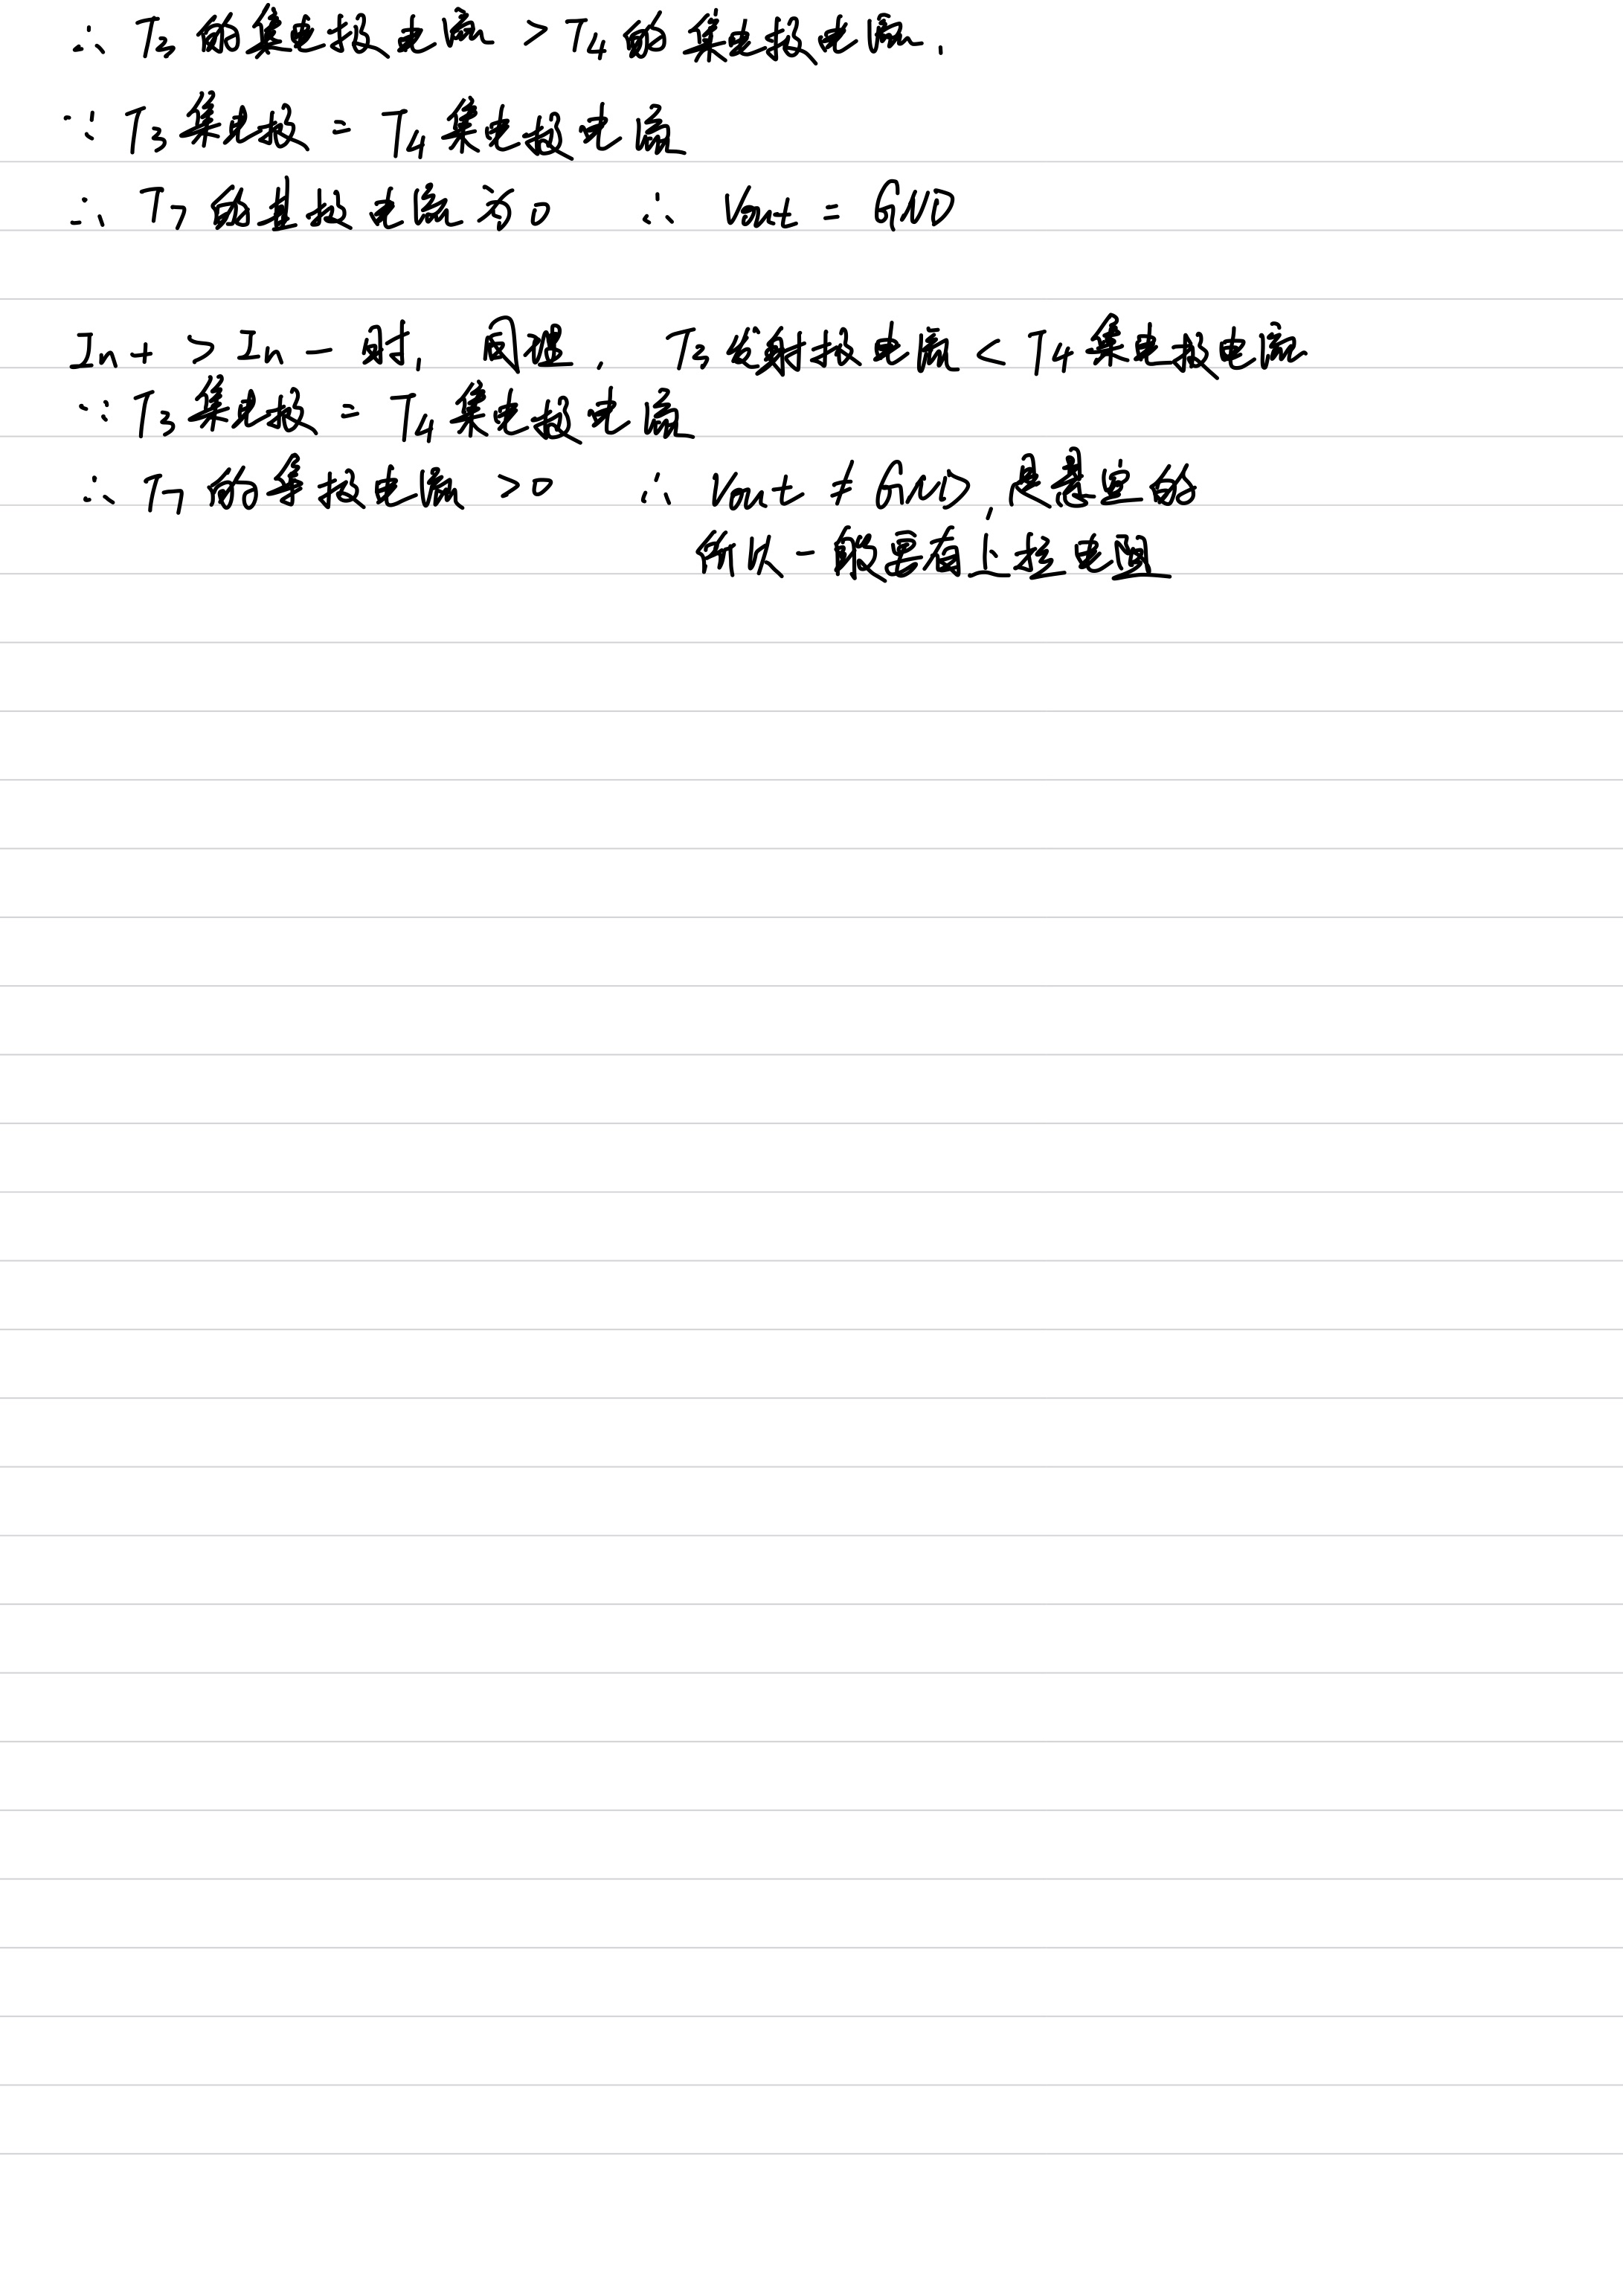 ∴ T₂ 的集电极电流 > T₄的集电极电流,
∵ T₃集电极 = T₄集电极电流
∴ T₇的基极电流为0 ∴ Vout = GND
In+ > In- 时, 同理, T₂发射极电流 < T₄集电极电流
∵ T₃集电极 = T₄集电极电流
∴ T₇的集极电流 >0 ∴ Vout ≠ GND, 是悬空的
所以一般要有上拉电阻